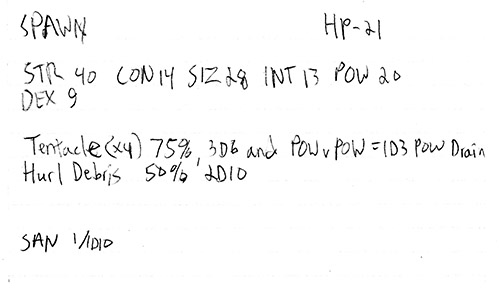 SPAWN HP-21
STR 40 CON 14 SIZ 28 INT 13 POW 20
DEX 9
Tentacle (x4) 75%, 3D6 and POW v POW = 1D3 POW Drain
Hurl Debris 50% 2D10
SAN 1/1D10